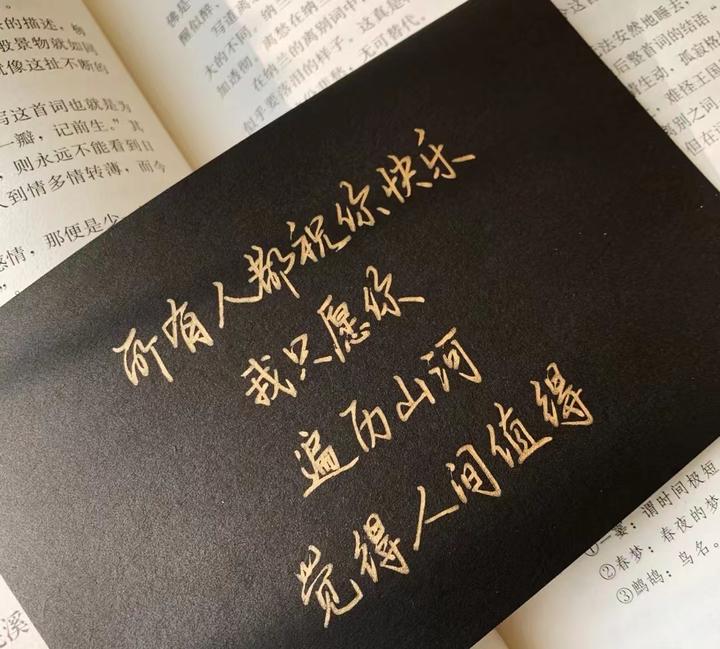 的描述,
投景物就如同
就像这扯不断的
写这首词也就是为
一瓣,记前生。"其
,则永远不能看到日
人到情多情转薄,而今
感情,那便是少
醒似醉、
写道
大的不同,离愁在纳
加透彻
在纳兰的离别词中
似乎要落泪的样子。这真是
无可替代。
法安然地睡去,
后整首词的结语
情生动,孤寂
难怪王国
别之词
但在
所有人都祝你快乐
我只愿你
遍历山河
觉得人间值得
谓时间极短
②春梦:春夜的梦
③鹧鸪:鸟名。
溪